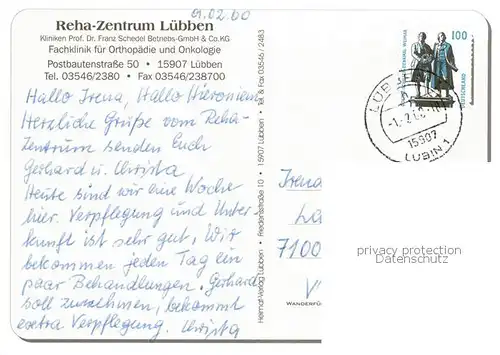 01.02.00
Reha-Zentrum Lübben
Kliniken Prof. Dr. Franz Schedel Betriebs-GmbH & Co.KG
Fachklinik für Orthopädie und Onkologie
Postbautenstraße 50 • 15907 Lübben
Tel. 03546/2380 • Fax 03546/238700
Hallo Irena, Hallo Hieroniem,
Herzliche Grüße vom Reha-
zentrum senden Euch
Gerhard u. Christa
Heute sind wir eine Woche
hier. Verpflegung und Unter-
kunft ist sehr gut, Wir
bekommen jeden Tag ein
paar Behandlungen. Gerhard
soll zunehmen, bekommt
extra Verpflegung. Christa
Heimat-Verlag Lübben • Friedensstraße 10 • 15907 Lübben • Tel & Fax 03546 / 2483
100
DEUTSCHLAND
15907
LÜBBEN
LUBIN 1
Irena
La
7100
WANDERFÜ
privacy protection
Datenschutz